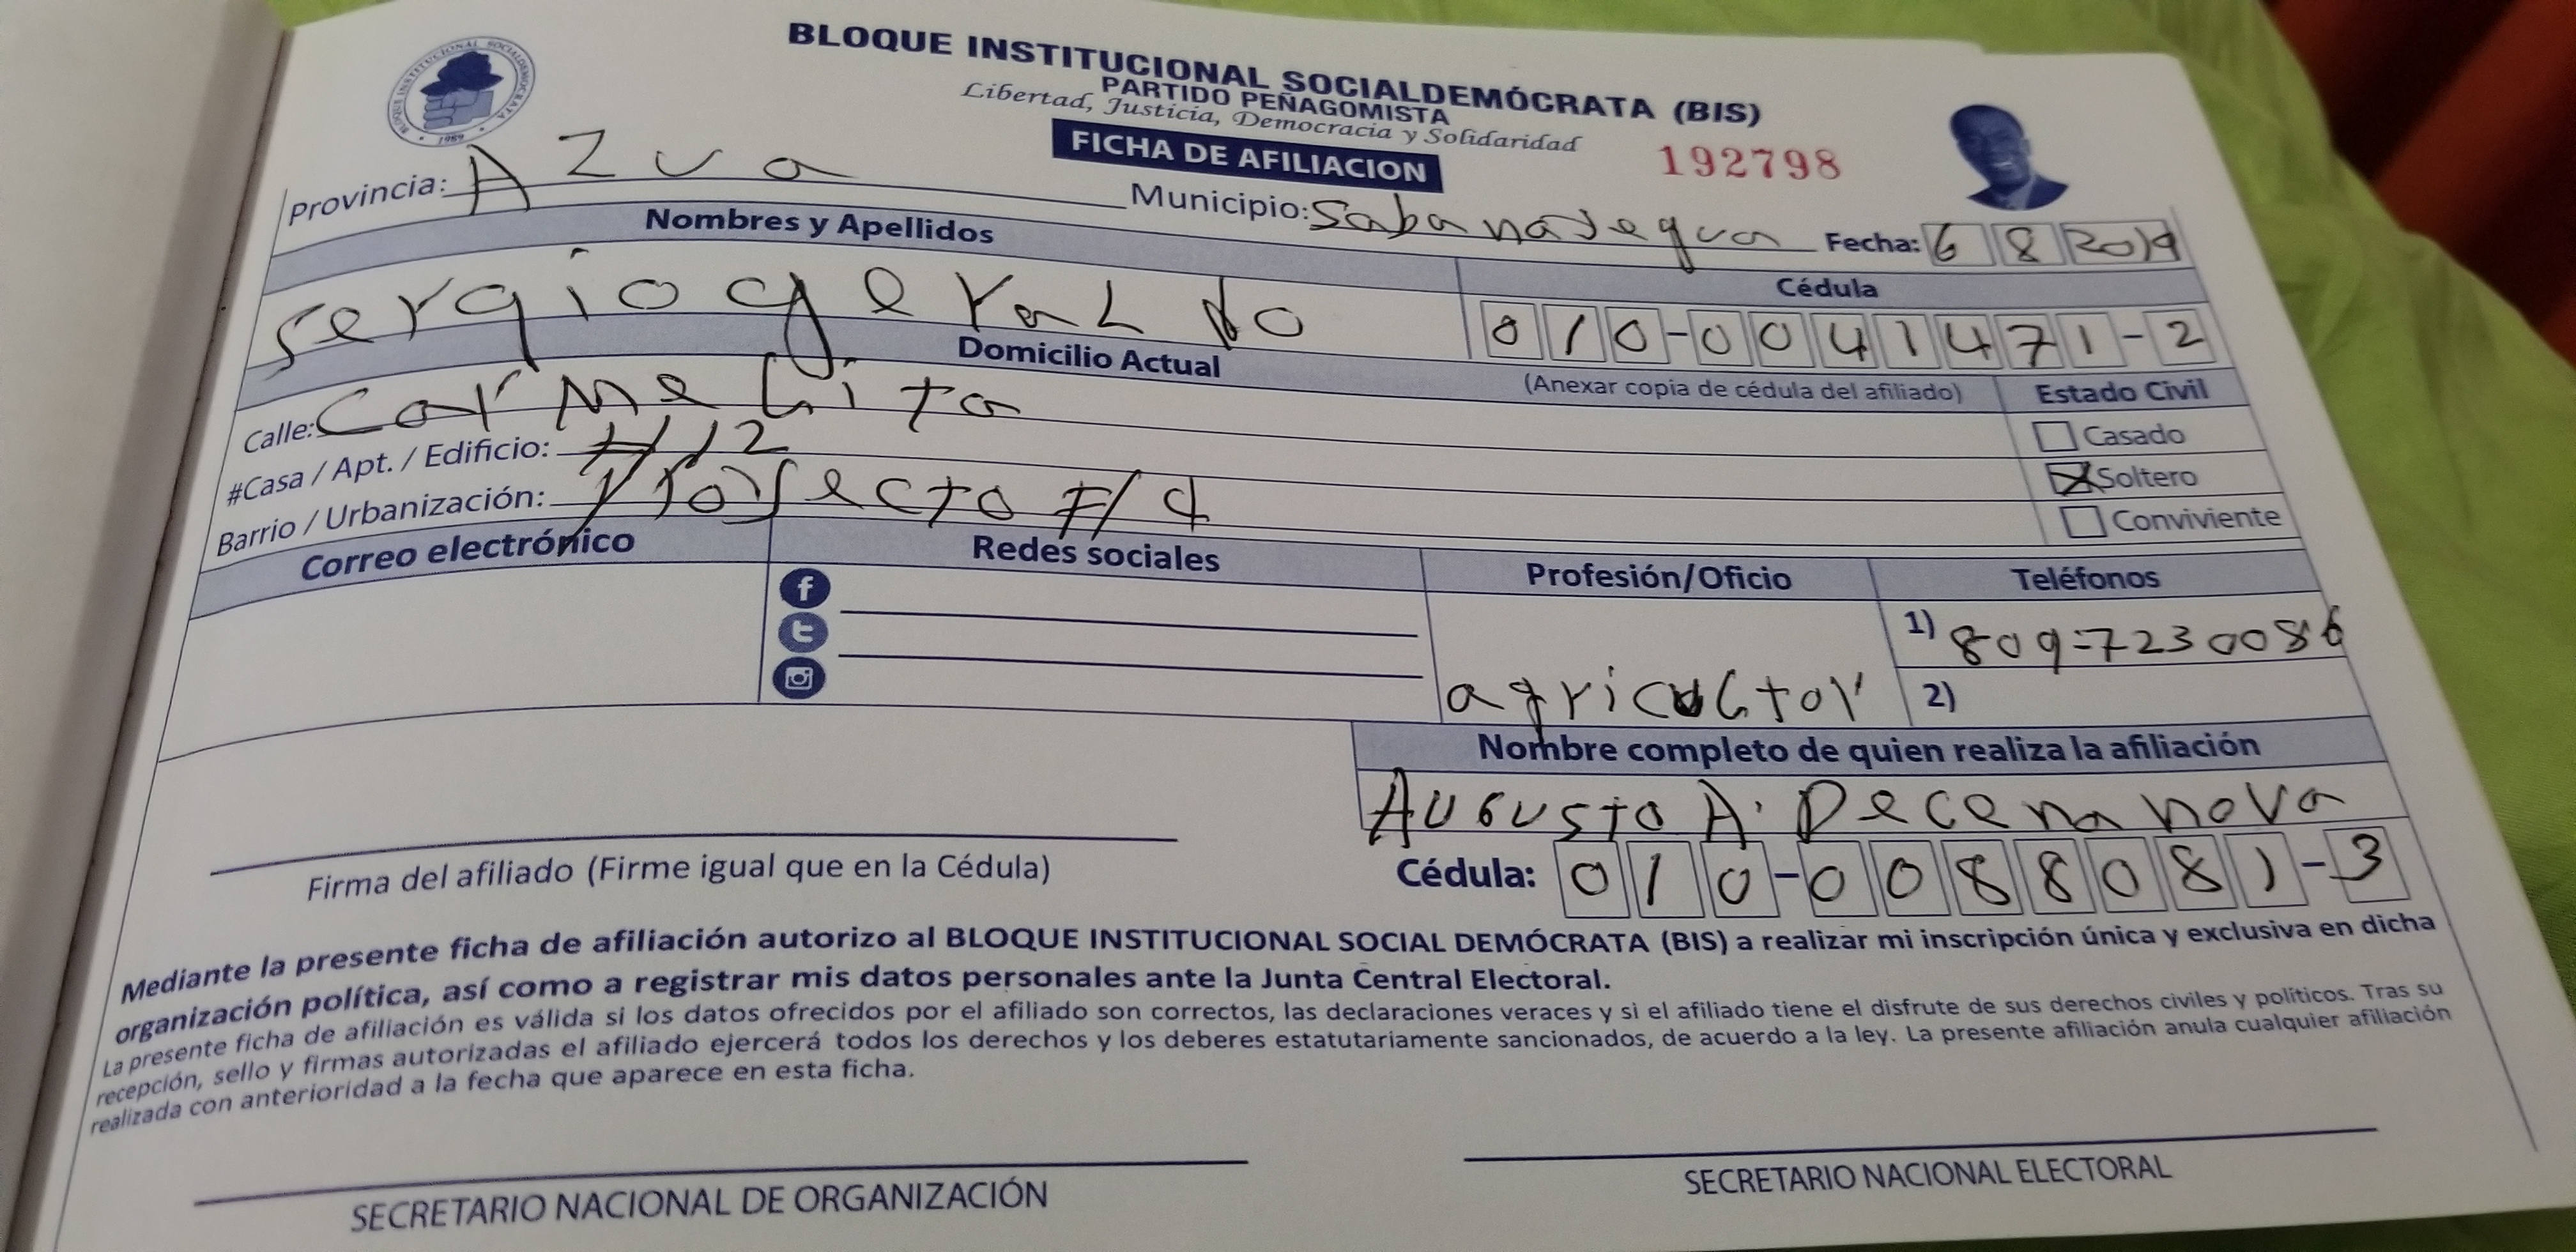 BLOQUE INSTITUCIONAL SOCIALDEMÓCRATA 1989
BLOQUE INSTITUCIONAL SOCIALDEMÓCRATA (BIS)
PARTIDO PEÑAGOMISTA
Libertad, Justicia, Democracia y Solidaridad
FICHA DE AFILIACION
192798
Provincia: Azua Municipio: Sabana Yegua Fecha: 6 8 2019
Nombres y Apellidos
Sergio geraLdo
Cédula
010-0041471-2
(Anexar copia de cédula del afiliado)
Domicilio Actual
Calle: CarmeLita
#Casa / Apt. / Edificio: #12
Barrio / Urbanización: Proyecto #4
Estado Civil
Casado
Soltero
Conviviente
Correo electrónico
Redes sociales
Profesión/Oficio
agricuLtor
Teléfonos
1) 809=7230086
2)
Nombre completo de quien realiza la afiliación
Augusto A. Decena nova
Cédula: 010-0088081-3
Firma del afiliado (Firme igual que en la Cédula)
Mediante la presente ficha de afiliación autorizo al BLOQUE INSTITUCIONAL SOCIAL DEMÓCRATA (BIS) a realizar mi inscripción única y exclusiva en dicha
organización política, así como a registrar mis datos personales ante la Junta Central Electoral.
La presente ficha de afiliación es válida si los datos ofrecidos por el afiliado son correctos, las declaraciones veraces y si el afiliado tiene el disfrute de sus derechos civiles y políticos. Tras su
recepción, sello y firmas autorizadas el afiliado ejercerá todos los derechos y los deberes estatutariamente sancionados, de acuerdo a la ley. La presente afiliación anula cualquier afiliación
realizada con anterioridad a la fecha que aparece en esta ficha.
SECRETARIO NACIONAL DE ORGANIZACIÓN
SECRETARIO NACIONAL ELECTORAL